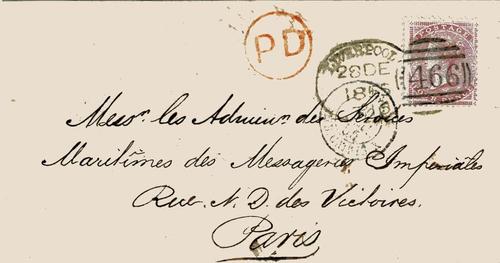 PD
LIVERPOOL
28 DE
18
466
POSTAGE
Messrs. les Adminrs. des Services
Maritimes des Messageries Imperiales
Rue N. D. des Victoires.
Paris